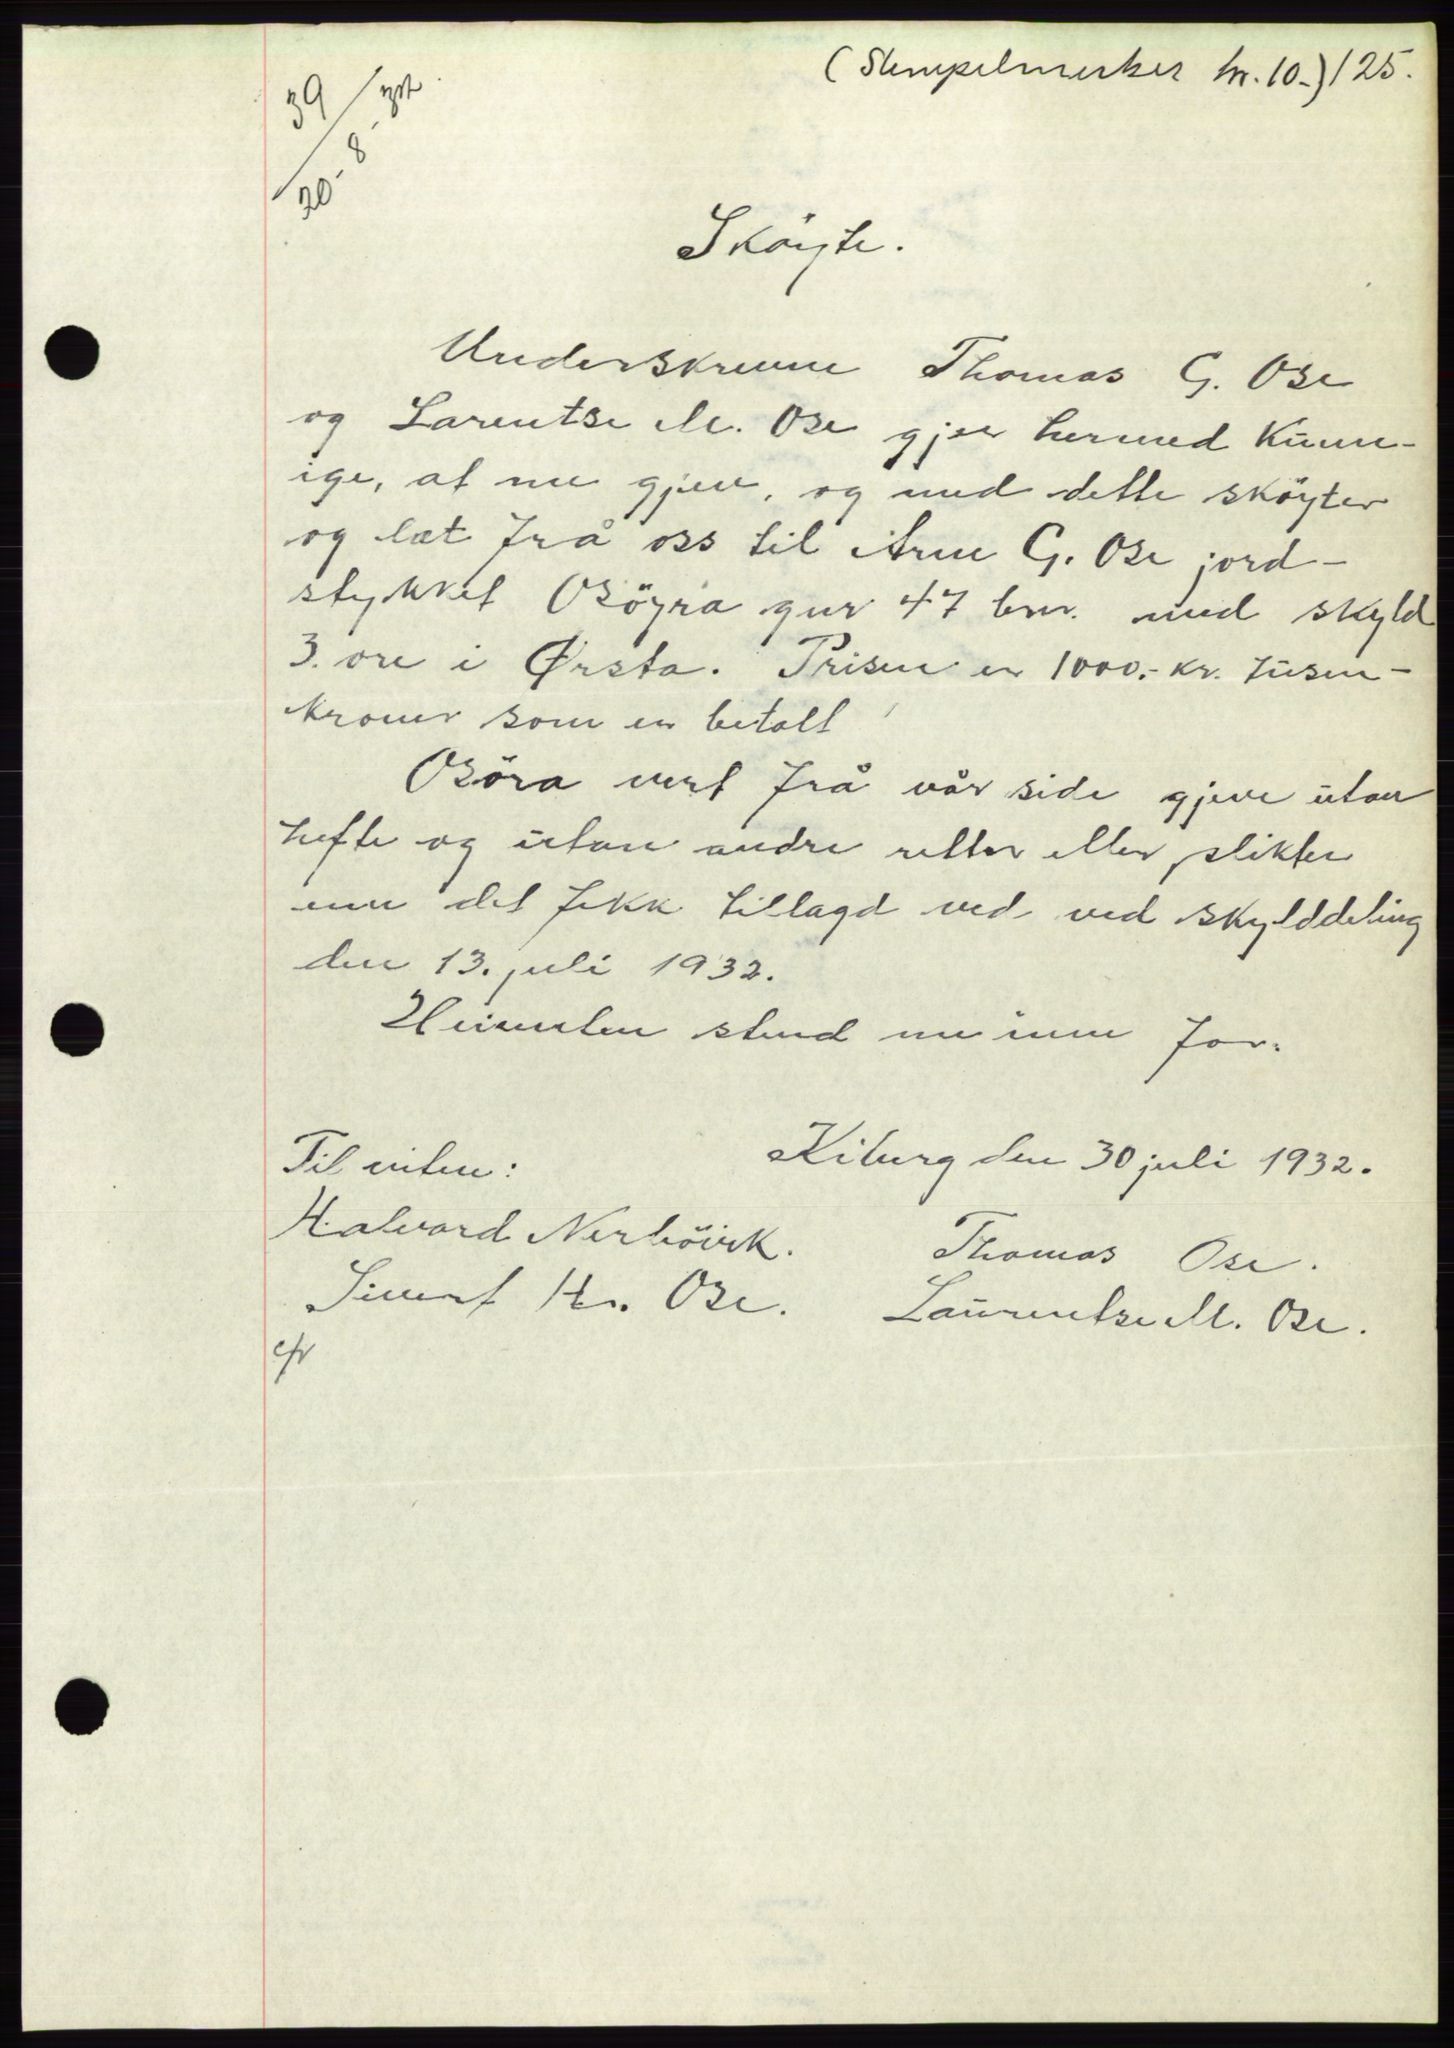 (Stempelmerker kr. 10.-) 125.
39
20-8-32
Sköyte.
Underskrevne Thomas G. Ose
og Larentse M. Ose gjer hermed kunn-
ige, at me gjev, og med dette sköyter
og læt frå oss til Arne G. Ose jord-
stykket Osöyra gnr 47 bnr. med skyld
3. øre i Ørsta. Prisen er 1000.- kr. tusen-
kroner som er betalt
Osöra vert frå vår side gjeve utan
hefte og utan andre retter eller plikter
enn det fekk tillagd ved ved skylddeling
den 13. juli 1932.
Heimelen stend me inne for.
Til viten:
Kiberg den 30 juli 1932.
Halvard Nerbövik.
Thomas Ose.
Sivert Hr. Ose.
Laurentse M. Ose.